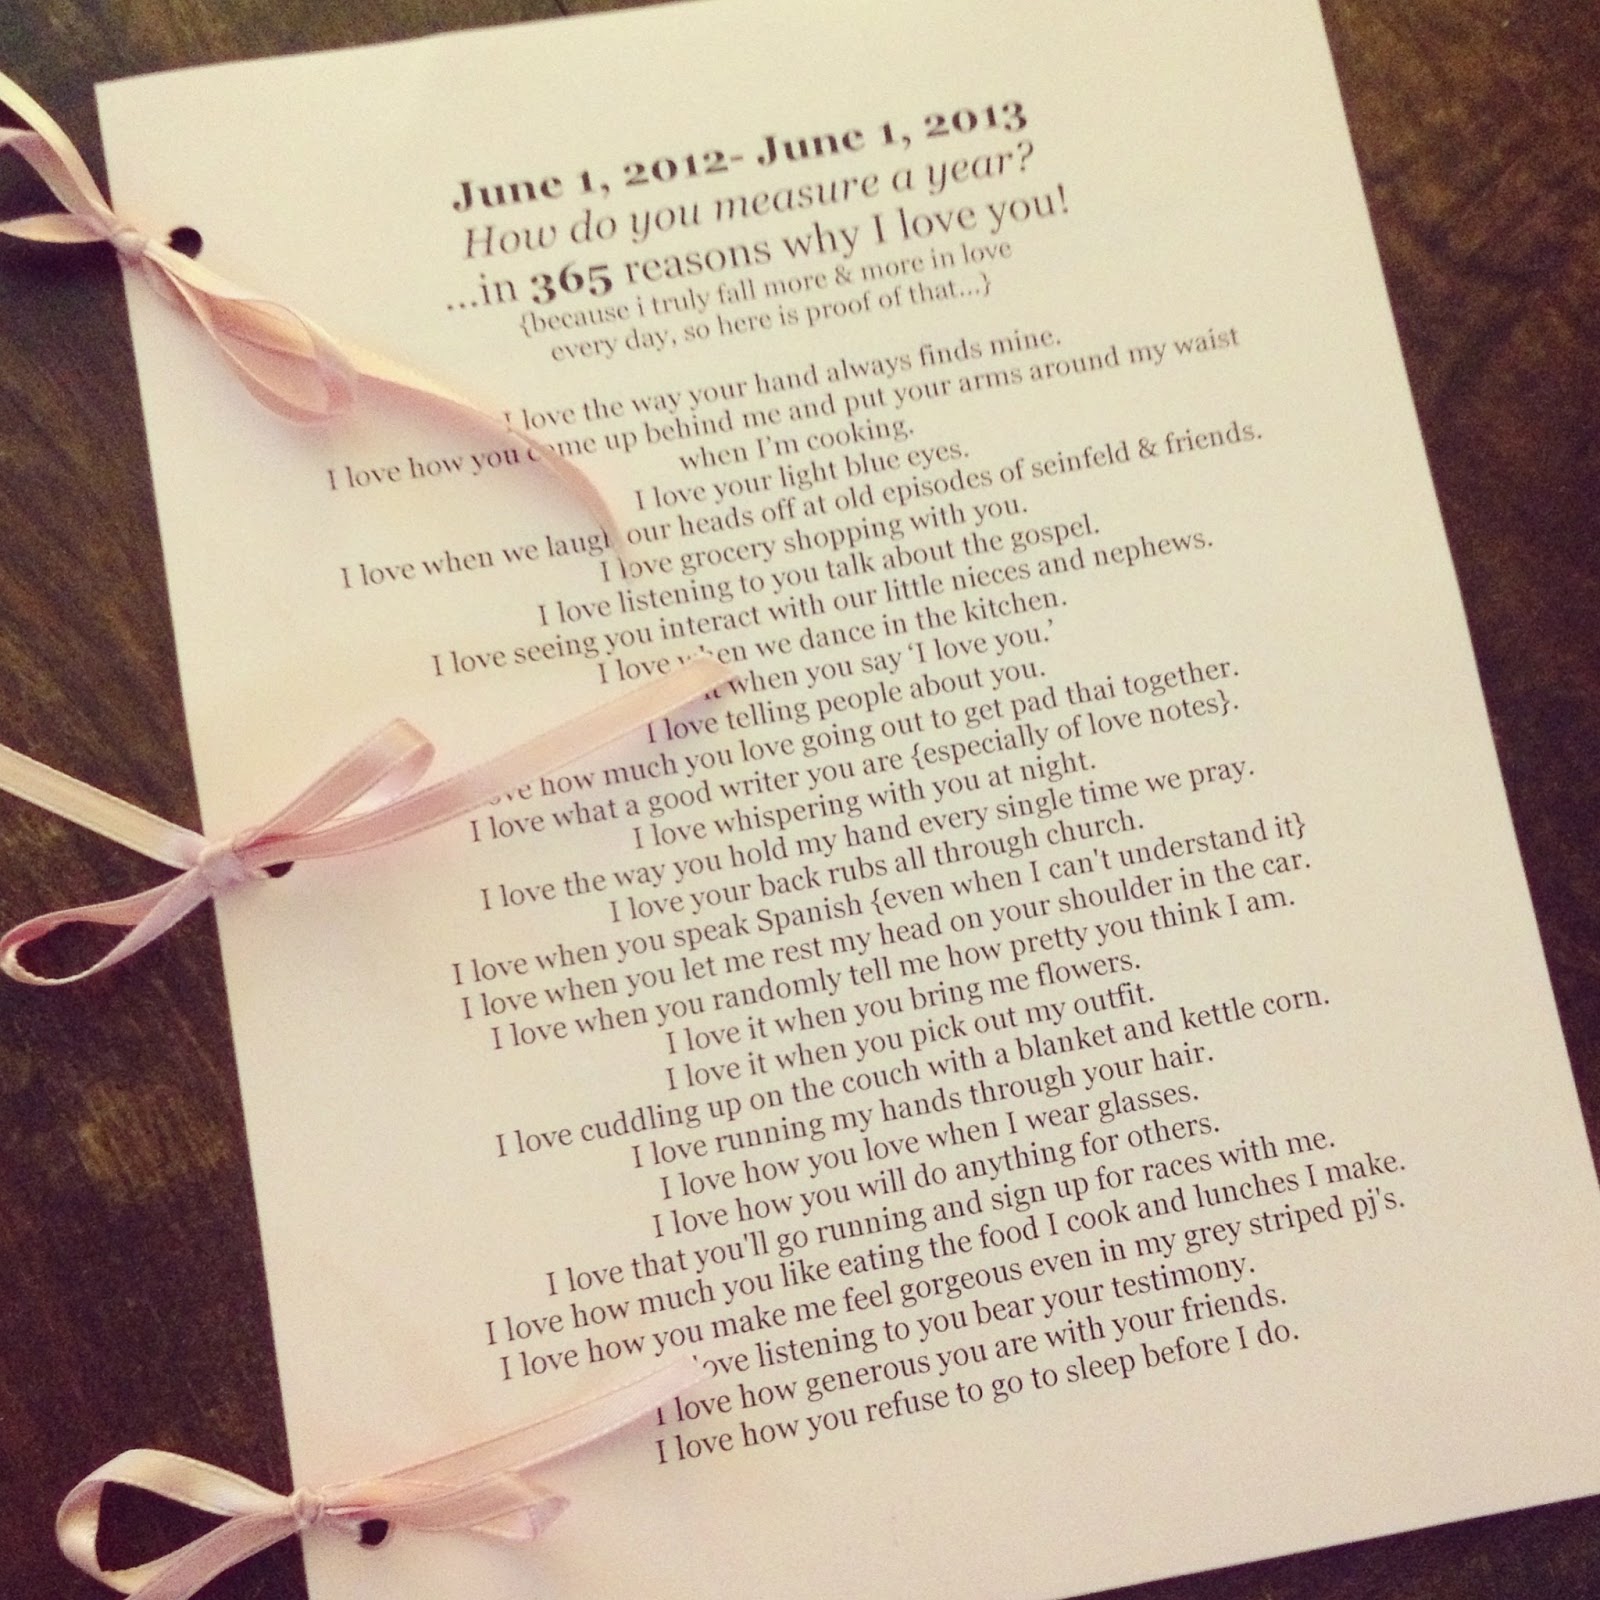 June 1, 2012- June 1, 2013
How do you measure a year?
...in 365 reasons why I love you!
{because i truly fall more & more in love
every day, so here is proof of that...}
I love the way your hand always finds mine.
I love how you come up behind me and put your arms around my waist
when I'm cooking.
I love your light blue eyes.
I love when we laugh our heads off at old episodes of seinfeld & friends.
I love grocery shopping with you.
I love listening to you talk about the gospel.
I love seeing you interact with our little nieces and nephews.
I love when we dance in the kitchen.
it when you say 'I love you.'
I love telling people about you.
love how much you love going out to get pad thai together.
I love what a good writer you are {especially of love notes}.
I love whispering with you at night.
I love the way you hold my hand every single time we pray.
I love your back rubs all through church.
I love when you speak Spanish {even when I can't understand it}
I love when you let me rest my head on your shoulder in the car.
I love when you randomly tell me how pretty you think I am.
I love it when you bring me flowers.
I love it when you pick out my outfit.
I love cuddling up on the couch with a blanket and kettle corn.
I love running my hands through your hair.
I love how you love when I wear glasses.
I love how you will do anything for others.
I love that you'll go running and sign up for races with me.
I love how much you like eating the food I cook and lunches I make.
I love how you make me feel gorgeous even in my grey striped pj's.
love listening to you bear your testimony.
I love how generous you are with your friends.
I love how you refuse to go to sleep before I do.